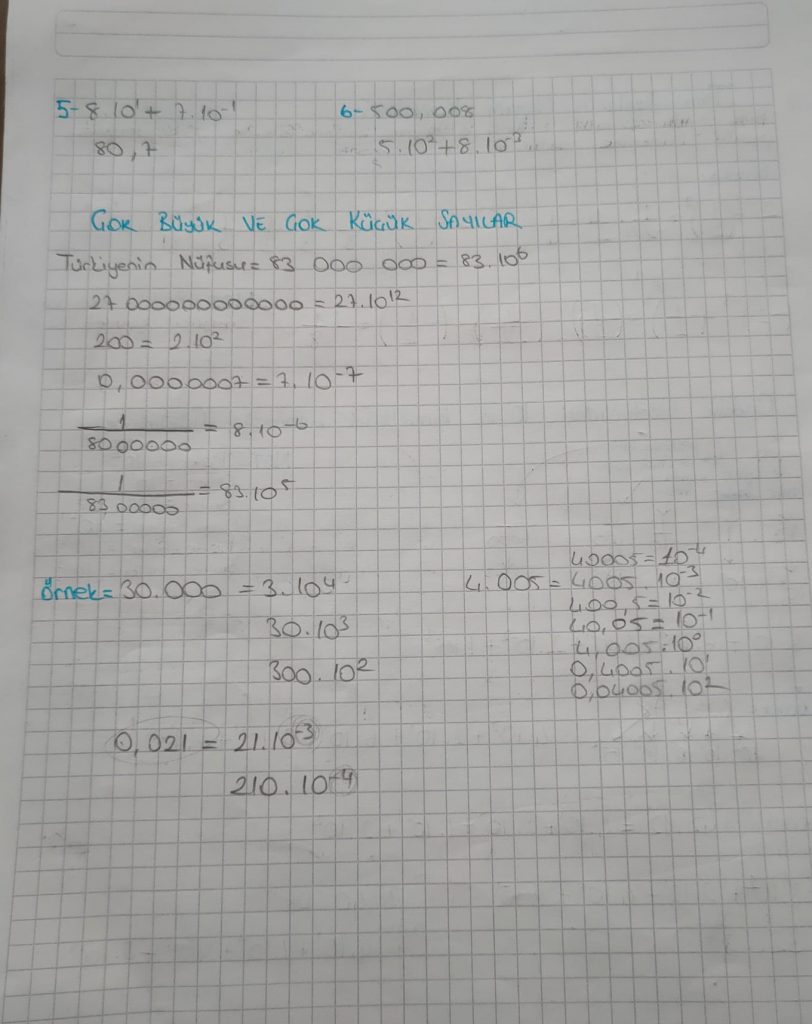 5- 8.10¹ + 7.10⁻¹
80,7
6- 500,008
5.10²+8.10⁻³
ÇOK BÜYÜK VE ÇOK KÜÇÜK SAYILAR
Türkiyenin Nüfusu= 83 000 000 = 83.10⁶
27 000000000000 = 27.10¹²
200 = 2.10²
0,0000007 = 7.10⁻⁷
1/8000000 = 8.10⁻⁶
1/8300000 = 83.10⁵
örnek= 30.000 = 3.10⁴
30.10³
300.10²
40005=10⁻⁴
4.005 = 4005.10⁻³
400,5=10⁻²
40,05=10⁻¹
4,005.10⁰
0,4005.10¹
0,04005.10²
0,021 = 21.10⁻³
210.10⁻⁴